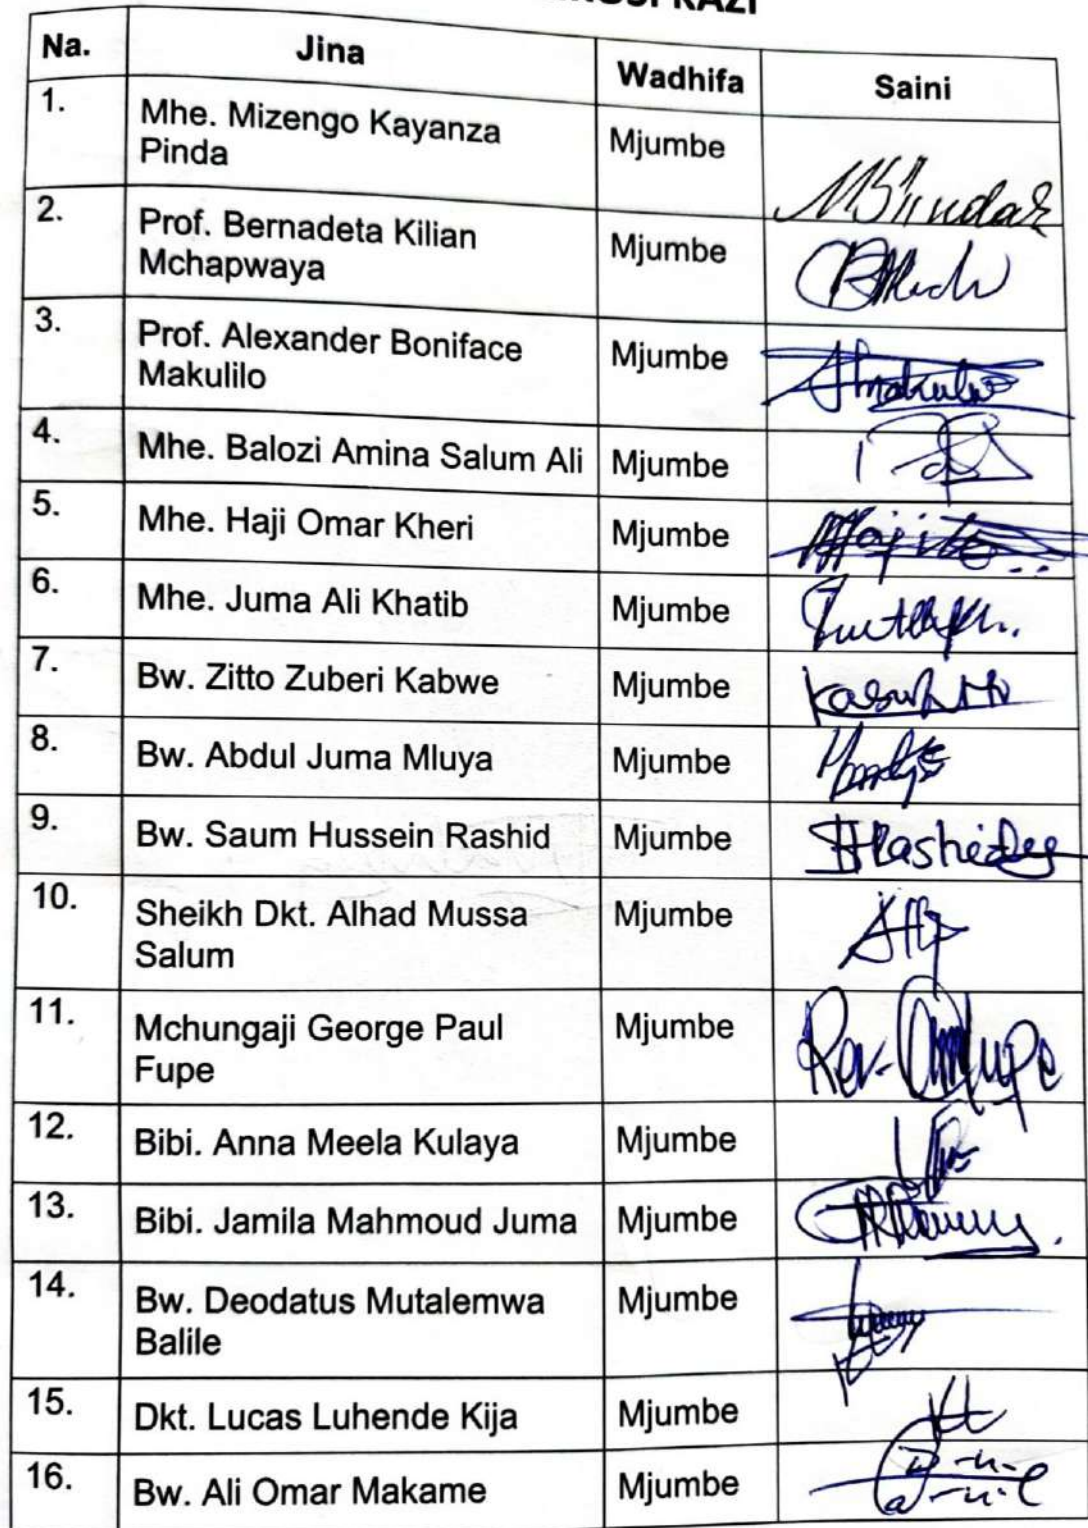 KAZI
Na. Jina Wadhifa Saini
1. Mhe. Mizengo Kayanza Mjumbe
Pinda
2. Prof. Bernadeta Kilian Mjumbe
Mchapwaya
3. Prof. Alexander Boniface Mjumbe
Makulilo
4. Mhe. Balozi Amina Salum Ali Mjumbe
5. Mhe. Haji Omar Kheri Mjumbe
6. Mhe. Juma Ali Khatib Mjumbe
7. Bw. Zitto Zuberi Kabwe Mjumbe
8. Bw. Abdul Juma Mluya Mjumbe
9. Bw. Saum Hussein Rashid Mjumbe
10. Sheikh Dkt. Alhad Mussa Mjumbe
Salum
11. Mchungaji George Paul Mjumbe
Fupe
12. Bibi. Anna Meela Kulaya Mjumbe
13. Bibi. Jamila Mahmoud Juma Mjumbe
14. Bw. Deodatus Mutalemwa Mjumbe
Balile
15. Dkt. Lucas Luhende Kija Mjumbe
16. Bw. Ali Omar Makame Mjumbe